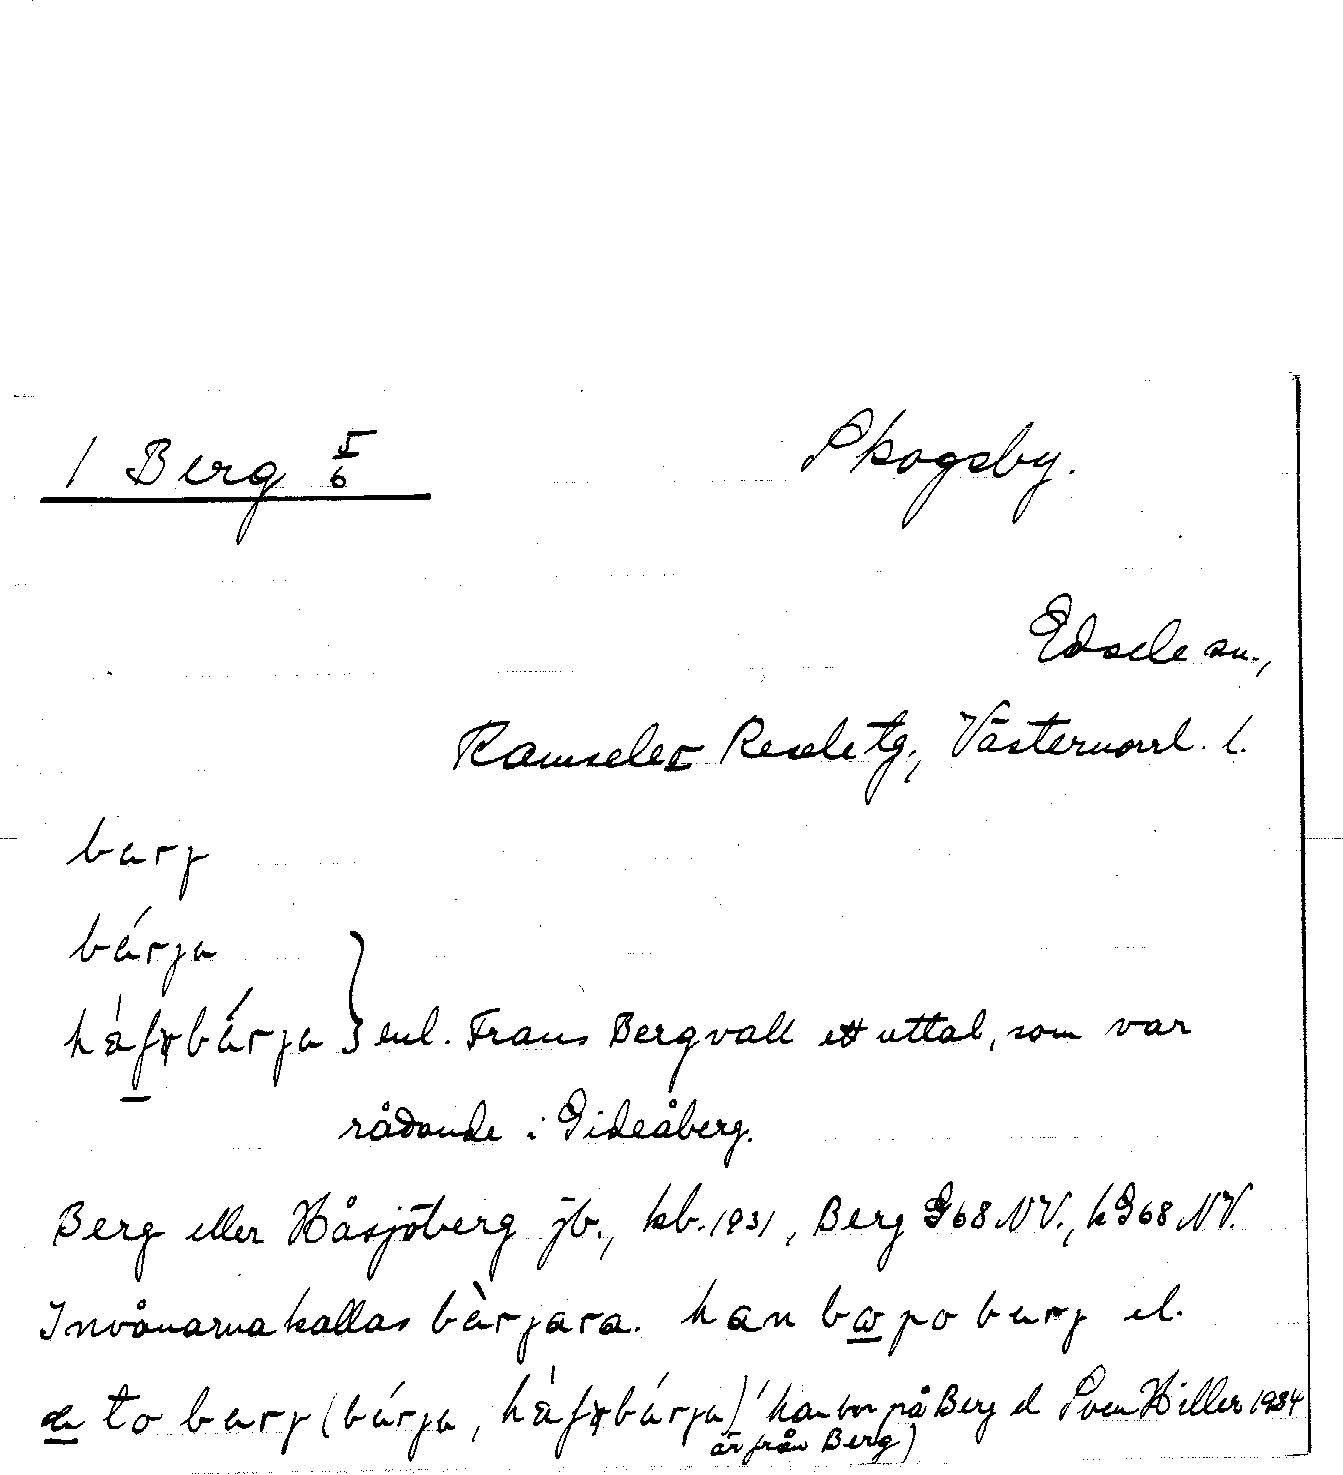 1 Berg 5/6
Skogsby.
Edsele sn.,
Ramsele Resele tg., Västernorrl. l.
barj
bárja
håfsbárja } enl. Frans Bergvall ett uttal, som var
rådande i Gideåberg.
Berg eller Håsjöberg jb., kb. 1931, Berg G68 NV., k G68 NV.
Invånarna kallas bàrjara. han bω po barj el.
æ to barj (bárja, håfsbárja) 'han bor på Berg el Sven Hiller 1934
är från Berg)